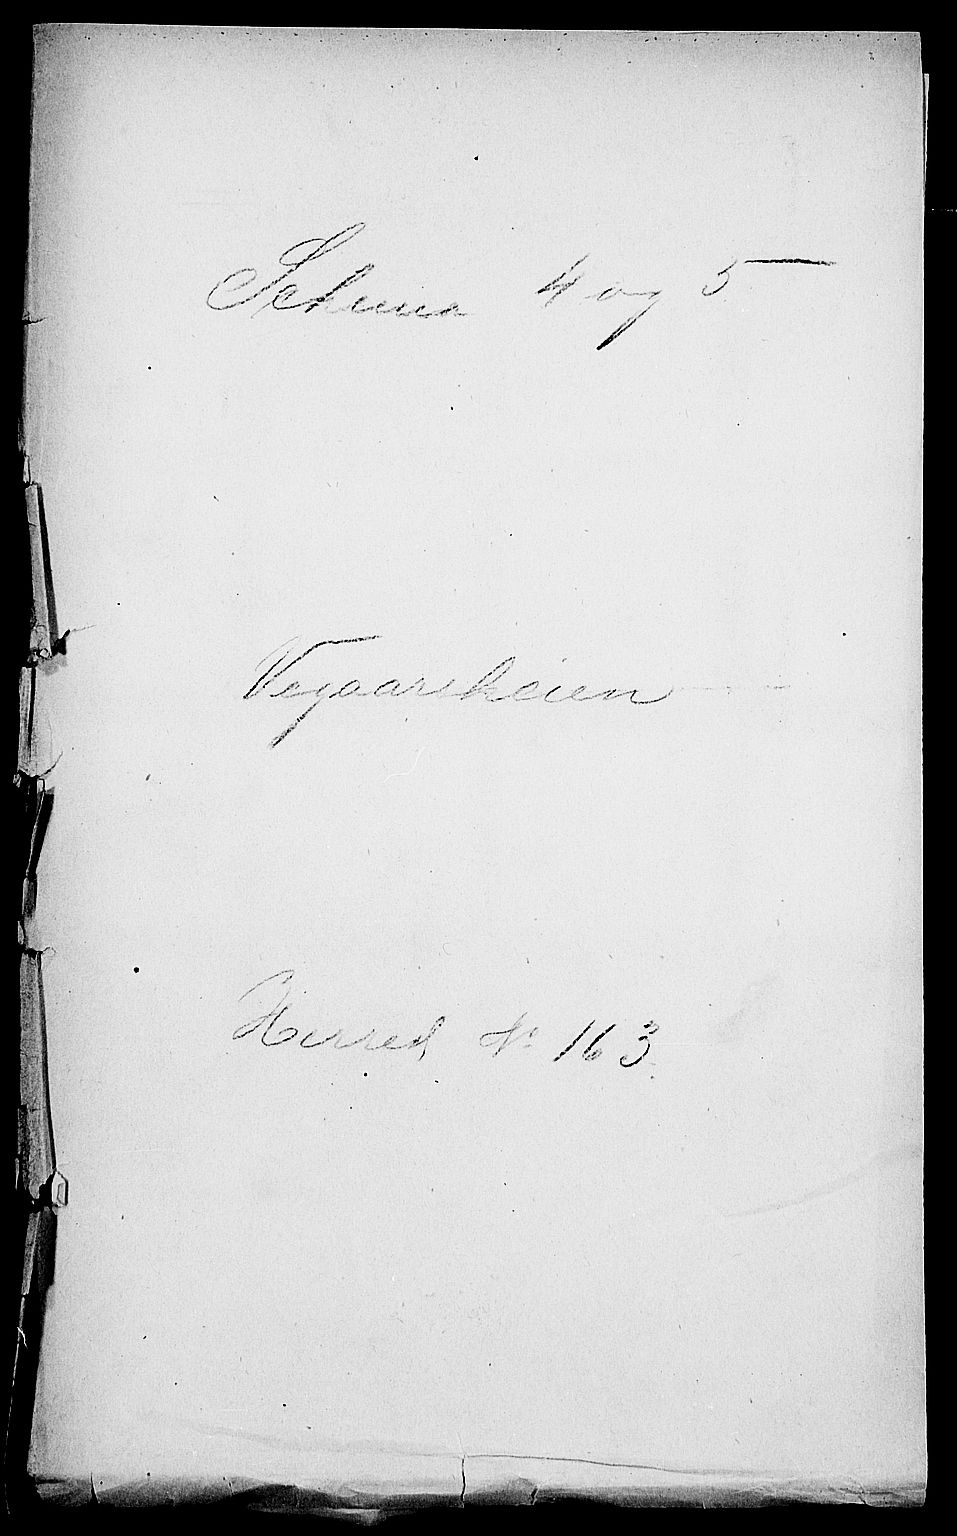 Schema 4 og 5
Vegaarsheien
Herred № 163.